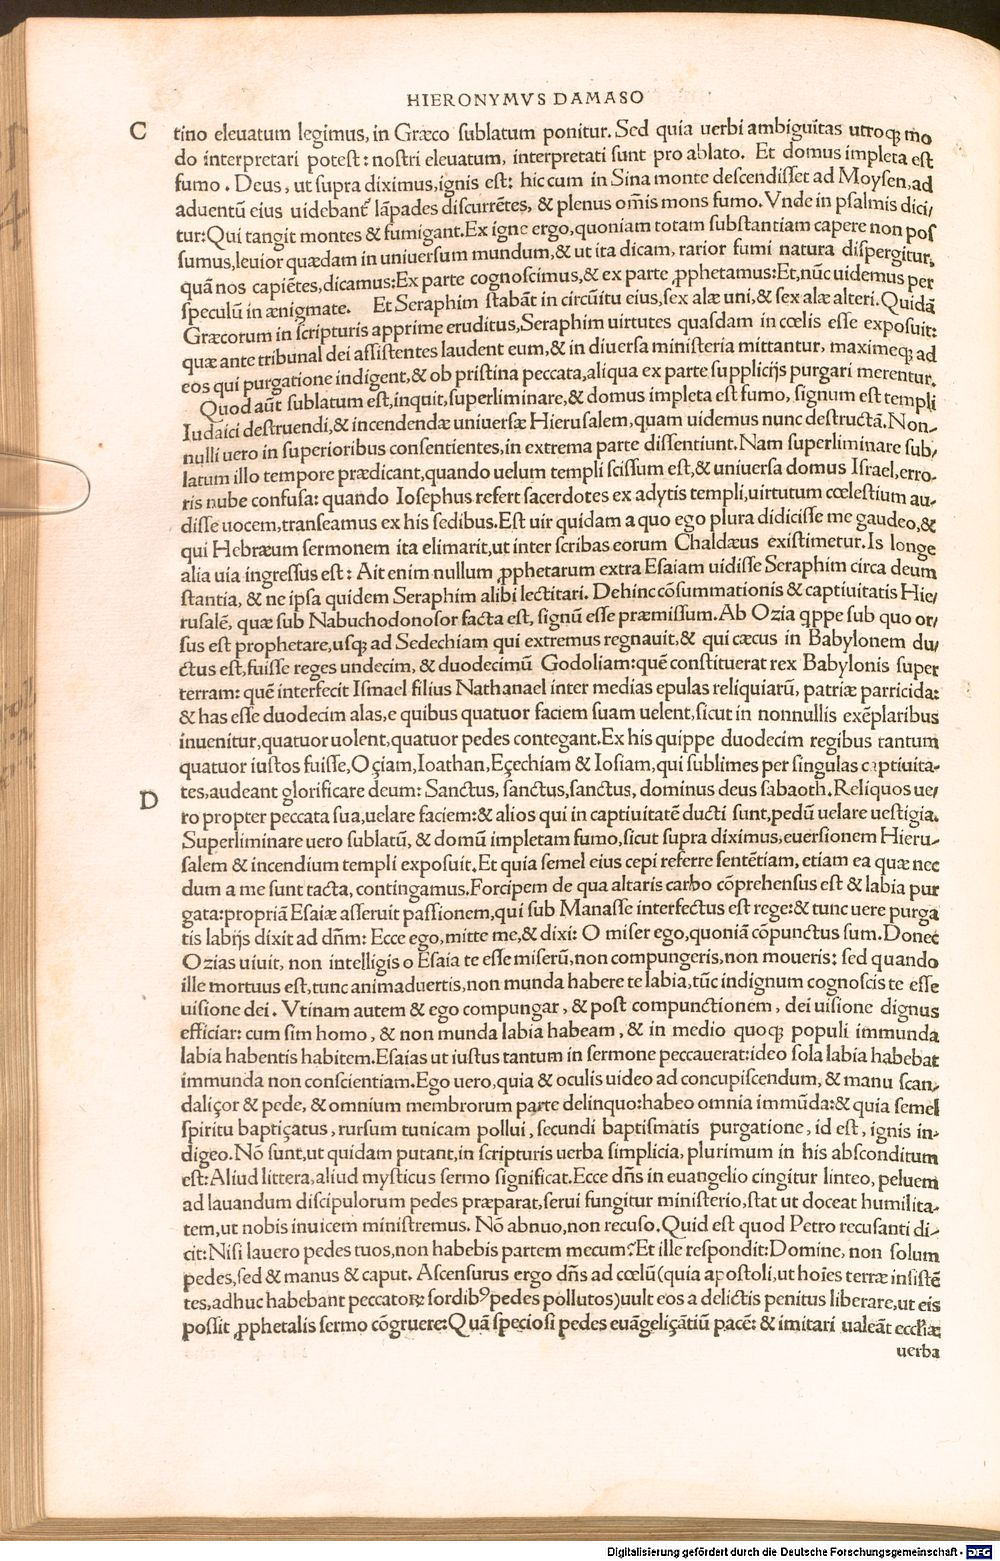 HIERONYMVS DAMASO
C
tino eleuatum legimus, in Græco ſublatum ponitur. Sed quia uerbi ambiguitas utroqꝫ mo
do interpretari poteſt: noſtri eleuatum, interpretati ſunt pro ablato. Et domus impleta eſt
fumo. Deus, ut ſupra diximus, ignis eſt: hic cum in Sina monte deſcendiſſet ad Moyſen, ad
aduentũ eius uidebantᷣ lãpades diſcurrẽtes, & plenus om̃is mons fumo. Vnde in pſalmis dici/
tur: Qui tangit montes & fumigant. Ex igne ergo, quoniam totam ſubſtantiam capere non poſ
ſumus, leuior quædam in uniuerſum mundum, & ut ita dicam, rarior fumi natura diſpergitur,
quã nos capiẽtes, dicamus: Ex parte cognoſcimus, & ex parte ꝓphetamus: Et, nũc uidemus per
ſpeculũ in ænigmate. Et Seraphim ſtabãt in circũitu eius, ſex alæ uni, & ſex alæ alteri. Quidã
Græcorum in ſcripturis apprime eruditus, Seraphim uirtutes quaſdam in cœlis eſſe expoſuit:
quæ ante tribunal dei aſſiſtentes laudent eum, & in diuerſa miniſteria mittantur, maximeqꝫ ad
eos qui purgatione indigent, & ob priſtina peccata, aliqua ex parte ſupplicijs purgari merentur.
Quod aũt ſublatum eſt, inquit, ſuperliminare, & domus impleta eſt fumo, ſignum eſt templi
Iudaici deſtruendi, & incendendæ uniuerſæ Hieruſalem, quam uidemus nunc deſtructã. Non-
nulli uero in ſuperioribus conſentientes, in extrema parte diſſentiunt. Nam ſuperliminare ſub/
latum illo tempore prædicant, quando uelum templi ſciſſum eſt, & uniuerſa domus Iſrael, erro-
ris nube confuſa: quando Ioſephus refert ſacerdotes ex adytis templi, uirtutum cœleſtium au-
diſſe uocem, tranſeamus ex his ſedibus. Eſt uir quidam a quo ego plura didiciſſe me gaudeo, &
qui Hebræum ſermonem ita elimarit, ut inter ſcribas eorum Chaldæus exiſtimetur. Is longe
alia uia ingreſſus eſt: Ait enim nullum ꝓphetarum extra Eſaiam uidiſſe Seraphim circa deum
ſtantia, & ne ipſa quidem Seraphim alibi lectitari. Dehinc cõſummationis & captiuitatis Hie/
ruſalẽ, quæ ſub Nabuchodonoſor facta eſt, ſignũ eſſe præmiſſum. Ab Ozia qppe ſub quo or/
ſus eſt prophetare, uſqꝫ ad Sedechiam qui extremus regnauit, & qui cæcus in Babylonem du/
ctus eſt, fuiſſe reges undecim, & duodecimũ Godoliam: quẽ conſtituerat rex Babylonis ſuper
terram: quẽ interfecit Iſmael filius Nathanael inter medias epulas reliquiarũ, patriæ parricida:
& has eſſe duodecim alas, e quibus quatuor faciem ſuam uelent, ſicut in nonnullis exẽplaribus
inuenitur, quatuor uolent, quatuor pedes contegant. Ex his quippe duodecim regibus tantum
quatuor iuſtos fuiſſe, Oçiam, Ioathan, Eçechiam & Ioſiam, qui ſublimes per ſingulas captiuita-
D
tes, audeant glorificare deum: Sanctus, ſanctus, ſanctus, dominus deus ſabaoth. Reliquos ue/
ro propter peccata ſua, uelare faciem: & alios qui in captiuitatẽ ducti ſunt, pedũ uelare ueſtigia.
Superliminare uero ſublatũ, & domũ impletam fumo, ſicut ſupra diximus, euerſionem Hieru-
ſalem & incendium templi expoſuit. Et quia ſemel eius cepi referre ſentẽtiam, etiam ea quæ nec
dum a me ſunt tacta, contingamus. Forcipem de qua altaris carbo cõprehenſus eſt & labia pur
gata: propriã Eſaiæ aſſeruit paſſionem, qui ſub Manaſſe interfectus eſt rege: & tunc uere purga
tis labijs dixit ad dñm: Ecce ego, mitte me, & dixi: O miſer ego, quoniã cõpunctus ſum. Donec
Ozias uiuit, non intelligis o Eſaia te eſſe miſerũ, non compungeris, non moueris: ſed quando
ille mortuus eſt, tunc animaduertis, non munda habere te labia, tũc indignum cognoſcis te eſſe
uiſione dei. Vtinam autem & ego compungar, & poſt compunctionem, dei uiſione dignus
efficiar: cum ſim homo, & non munda labia habeam, & in medio quoqꝫ populi immunda
labia habentis habitem. Eſaias ut iuſtus tantum in ſermone peccauerat: ideo ſola labia habebat
immunda non conſcientiam. Ego uero, quia & oculis uideo ad concupiſcendum, & manu ſcan-
daliçor & pede, & omnium membrorum parte delinquo: habeo omnia immũda: & quia ſemel
ſpiritu baptiçatus, rurſum tunicam pollui, ſecundi baptiſmatis purgatione, id eſt, ignis in-
digeo. Nõ ſunt, ut quidam putant, in ſcripturis uerba ſimplicia, plurimum in his abſconditum
eſt: Aliud littera, aliud myſticus ſermo ſignificat. Ecce dñs in euangelio cingitur linteo, peluem
ad lauandum diſcipulorum pedes præparat, ſerui fungitur miniſterio, ſtat ut doceat humilita-
tem, ut nobis inuicem miniſtremus. Nõ abnuo, non recuſo. Quid eſt quod Petro recuſanti di-
cit: Niſi lauero pedes tuos, non habebis partem mecum? Et ille reſpondit: Domine, non ſolum
pedes, ſed & manus & caput. Aſcenſurus ergo dñs ad cœlũ (quia apoſtoli, ut hoĩes terræ inſiſtẽ
tes, adhuc habebant peccatoꝝ ſordibꝰ pedes pollutos) uult eos a delictis penitus liberare, ut eis
poſſit ꝓphetalis ſermo cõgruere: Quã ſpecioſi pedes euãgeliçãtiũ pacẽ: & imitari ualeãt eccl'iæ
uerba
Digitalisierung gefördert durch die Deutsche Forschungsgemeinschaft - DFG